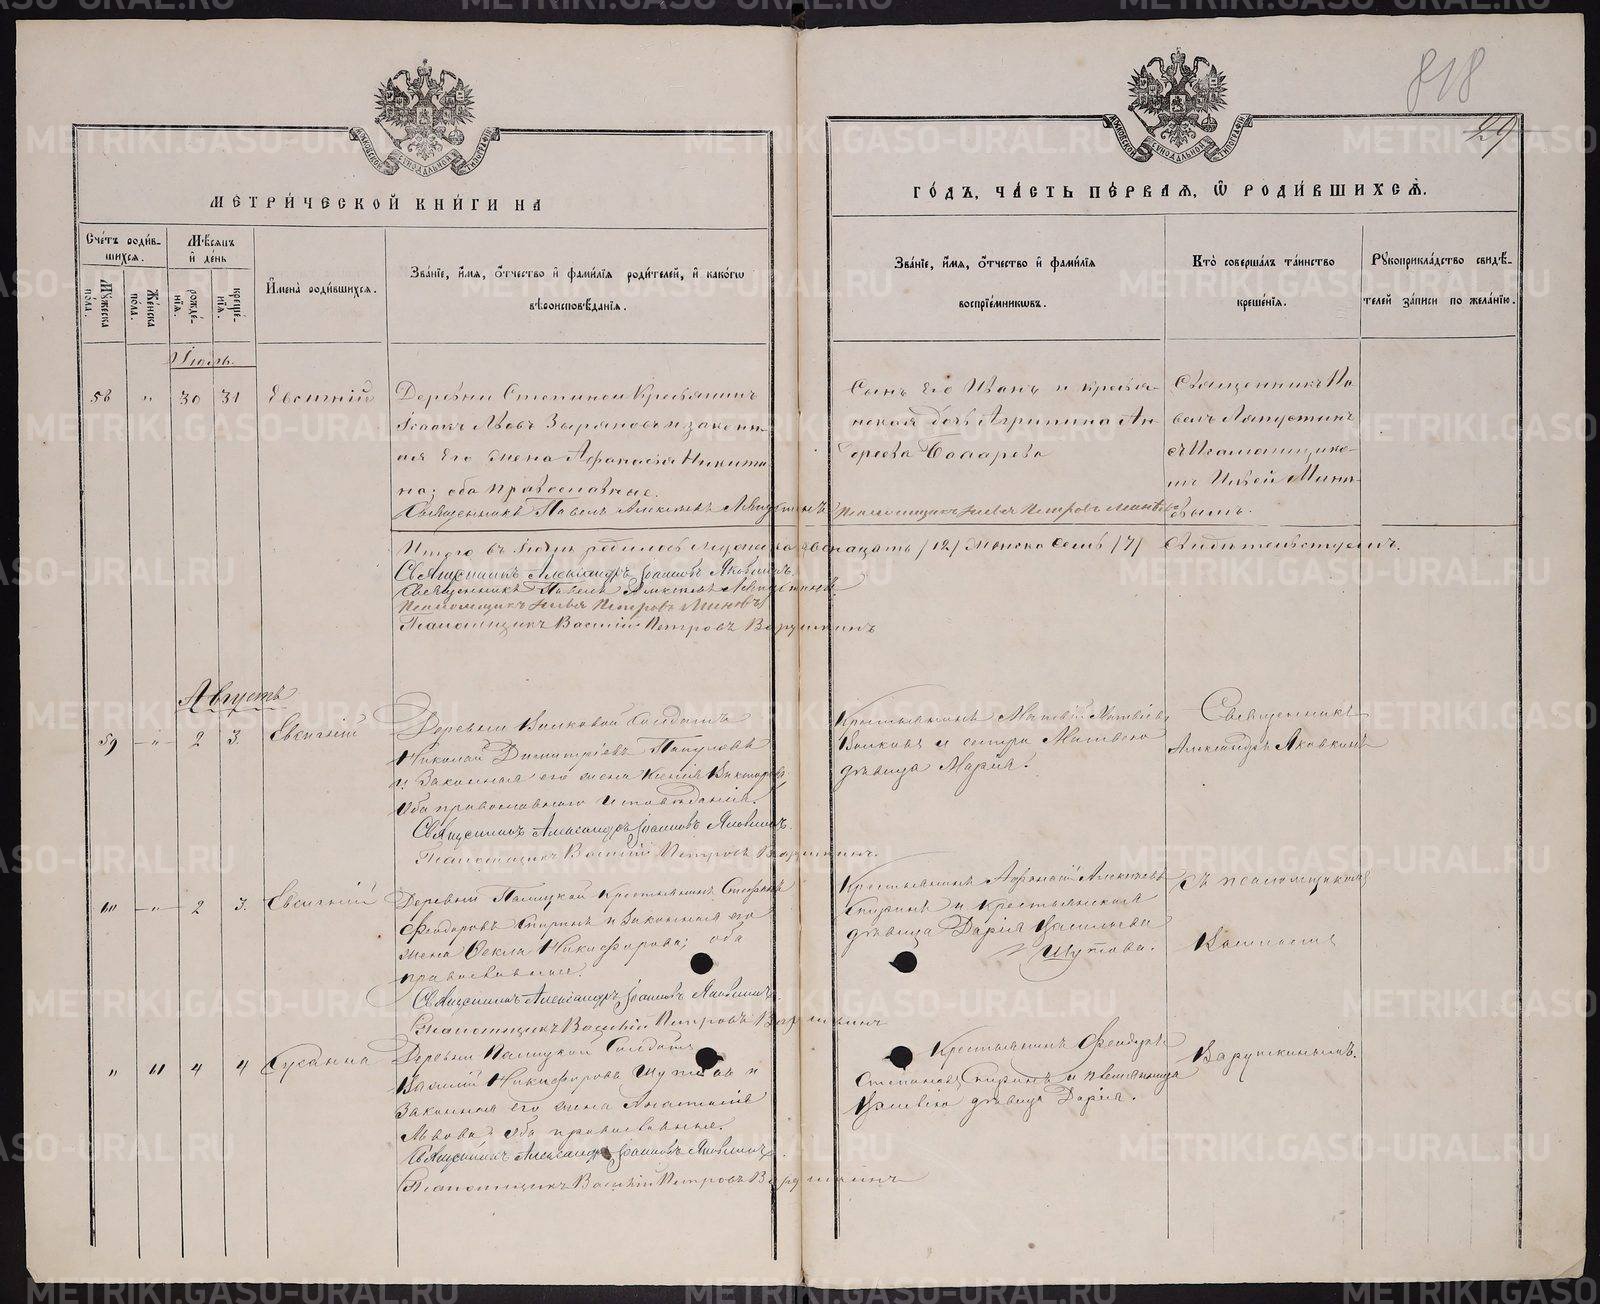 818
29
МОСКОВСКОЙ СѴНОДАЛЬНОЙ ТИПОГРАФІИ
МОСКОВСКОЙ СѴНОДАЛЬНОЙ ТИПОГРАФІИ
МЕТРИ́ЧЕСКОЙ КНИ́ГИ НА
ГО́ДЪ, ЧА́СТЬ ПЕ́РВАЯ, Ѡ РОДИ́ВШИХСЯ.
Сче́тъ роди́в-
шихся.
Мѣ́сяцъ
и҆ де́нь
Му́жеска
по́ла.
Же́нска
по́ла.
рожде́-
нїя.
креще́-
нїя.
И҆мена̀ роди́вшихся.
Зва́нїе, и҆́мя, ѻ҆́тчество и҆ фами́лїя роди́телей, и҆ како́гѡ
вѣроисповѣ́данїя.
Зва́нїе, и҆́мя, ѻ҆́тчество и҆ фами́лїя
воспрїе́мникѡвъ.
Кто̀ соверша́лъ та́инство
креще́нїя.
Рукоприкла́дство свидѣ́-
телей за́писи по жела́нїю.
Іюль.
58 " 30 31 Евсигній
Деревни Степиной Крестьянинъ
Ісаакъ Львовъ Зыряновъ и закон-
ная его жена Афанасія Никити-
на; оба православные.
Священникъ Павелъ Алексѣевъ Ляпустинъ
Псаломщикъ Илья Петровъ Миновъ
Сынъ его Иванъ и крестья-
нская дочь Агрипина Ан-
дреева
Священникъ Па-
велъ Ляпустинъ
съ Псаломщико-
мъ Ильей Мино-
вымъ.
Итого въ Іюлѣ родилось мужеска двенадцать /12/ женска семь /7/ Свидетельствуемъ.
Священникъ Александръ Іоанновъ Яковкинъ.
Священникъ Павелъ Алексѣевъ Ляпустинъ
Псаломщикъ Илья Петровъ Миновъ
Псаломщикъ Василій Петровъ Варушкинъ
Августъ
59 " 2 3. Евсигній
Деревни Волковой Солдатъ
Николай Димитріевъ
и законная его жена Ксенія Викторова
Оба православнаго исповѣданія.
Священникъ Александръ Іоанновъ Яковкинъ.
Псаломщикъ Василій Петровъ Варушкинъ.
Крестьянинъ Матвѣй Матвѣевъ
Волковъ и сестра Матвея
дѣвица Марія.
Священникъ
Александръ Яковкинъ
60 " 2 3. Евсигній
Деревни Палецкой Крестьянинъ Стефанъ
Феодоровъ Спиринъ и Законная его
жена Ѳекла Никифорова; оба
православные.
Священникъ Александръ Іоанновъ Яковкинъ.
Псаломщикъ Василій Петровъ Варушкинъ
Крестьянинъ Афонасій Алексѣевъ
Спиринъ и Крестьянская
дѣвица Дарія Васильева
Шутова.
съ псаломщикомъ
Василіемъ
" 41 4 4 Сусанна
Деревни Палецкой Солдатъ
Василій Никифоровъ Шутовъ и
Законная его жена Анастасія
Львова. Оба православные.
Священникъ Александръ Іоанновъ Яковкинъ.
Псаломщикъ Василій Петровъ Варушкинъ
Крестьянинъ Феодулъ
Степановъ Спиринъ и племянница
Василія дѣвица Дарія.
Варушкинымъ.
METRIKI.GASO-URAL.RU